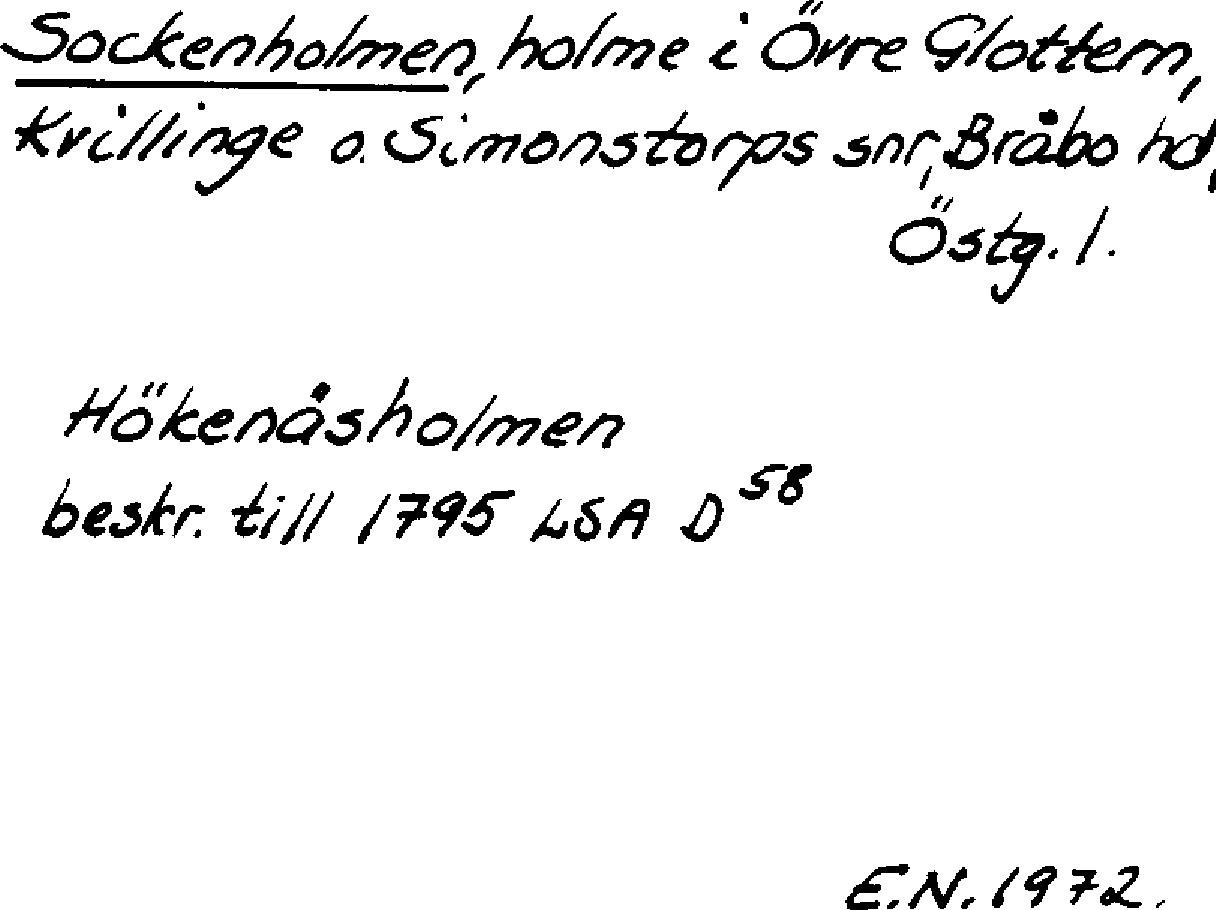 Sockenholmen, holme i Övre Glottern,
Kvillinge o. Simonstorps snr, Bråbo hd,
Östg. l.
Hökenåsholmen
beskr. till 1795 LSA D 58
E.N. 1972.